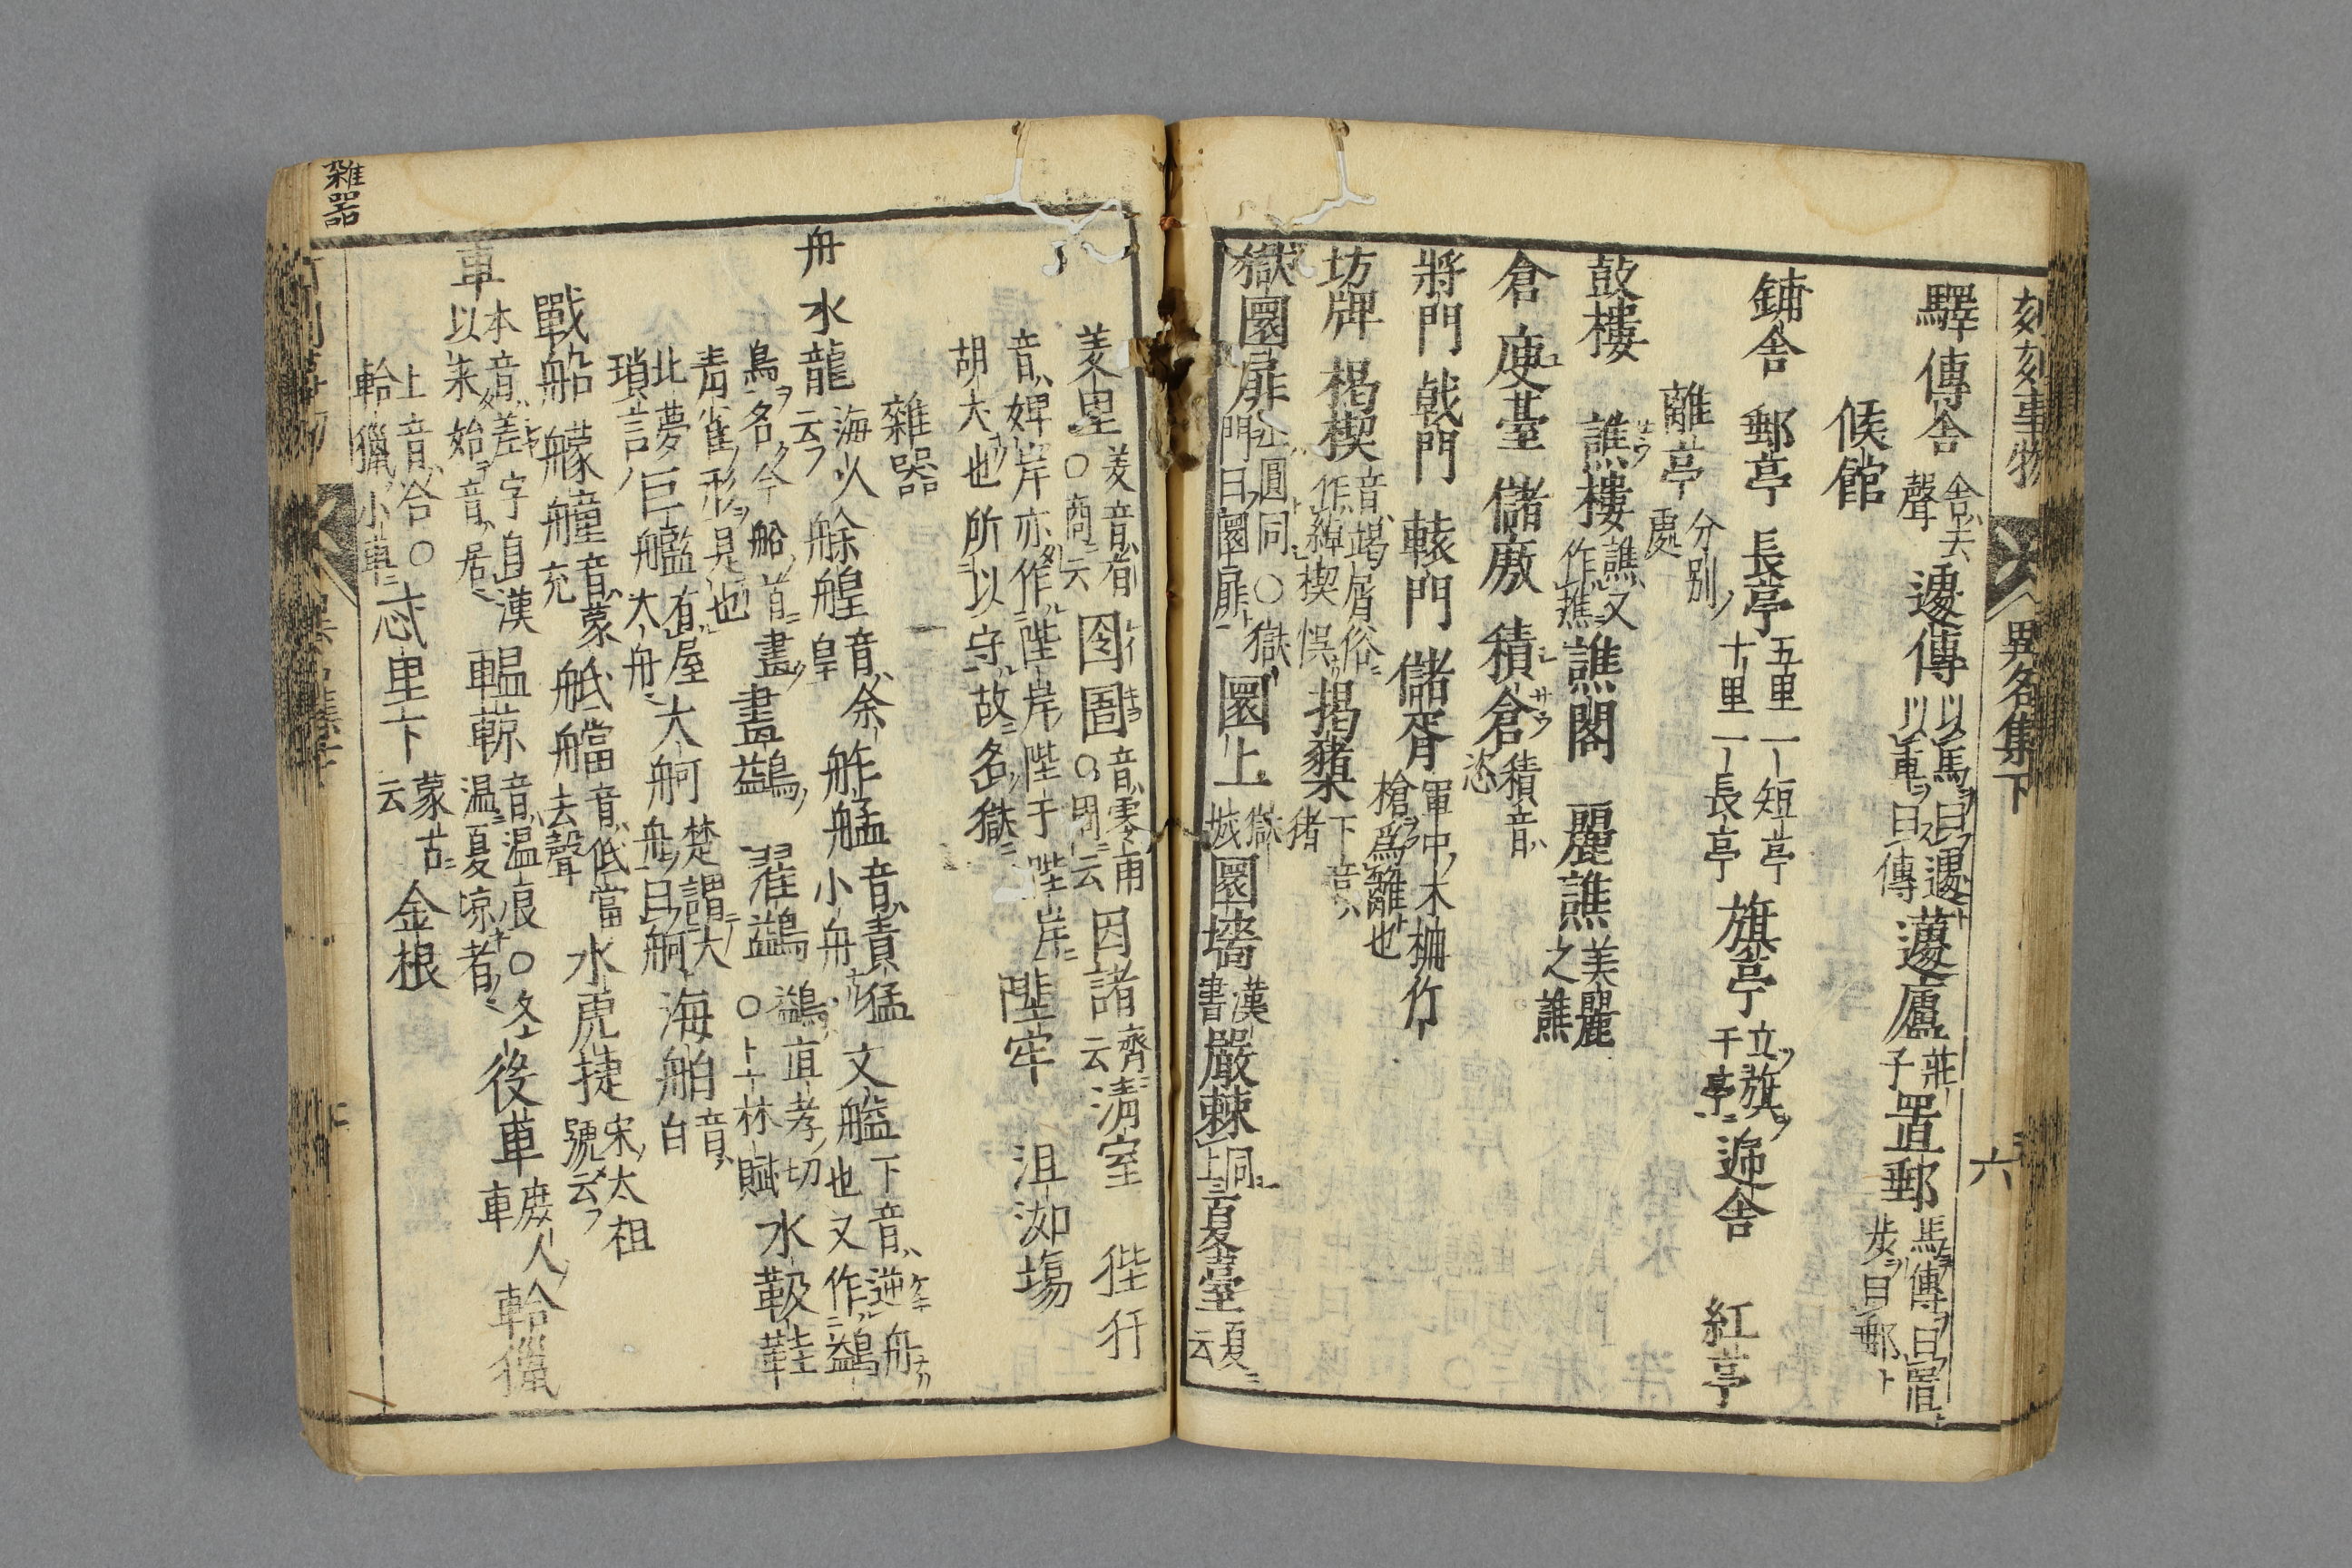 刻事物 異名集下 六
驛 傳舍 舍去聲 遽傳 以馬曰遽以車曰傳 蘧廬 莊子 置郵 馬傳曰置歩曰郵
候館
鋪舎 郵亭 長亭 五里一短亭十里一長亭 旗亭 立旗于亭 逓舎 紅亭
離亭 分別處
鼓樓 譙樓 譙又作蕉 譙閣 麗譙 美麗之譙
倉 庾臺 儲廒 積倉 積音恣
將門 戟門 轅門 儲胥 軍中木柵竹槍爲籬也
坊牌 楬楔 音竭屑俗作綽楔悞 揭豬 下音猪
獄 圜扉 仝圓同○獄門曰圜扉 圜土 獄城 圜墻 漢書 嚴棘 上同 夏臺 夏云
羑里 羑音酉○商云 囹圄 音零甫○周云 因諸 齊云 清室 狴犴
音婢岸亦作陛岸陛于陛岸 陛牢 沮洳塲
胡犬也所以守故名獄
雜器
舟 水龍 海火云 艅艎 音余皇 舴艋 音責猛小舟 文艗 下音逆舟也又作鷁
鳥名今船首畫 畫鷁 翟鷁 鷁宜孝切○上林賦 水靸鞋
青雀形是也
北夢瑣言 巨艦 有屋大舟 大舸 楚謂大船曰舸 海舶 音白
戰船 艨艟 音蒙充 艤艡 音低當去聲 水虎捷 宋太祖號云
車 本音差字自漢以来始音居 轀輬 音温良○冬温夏凉者 役車 庶人車 輅獵
上音合○輅獵小車 忒里卞 蒙古云 金根
雜器